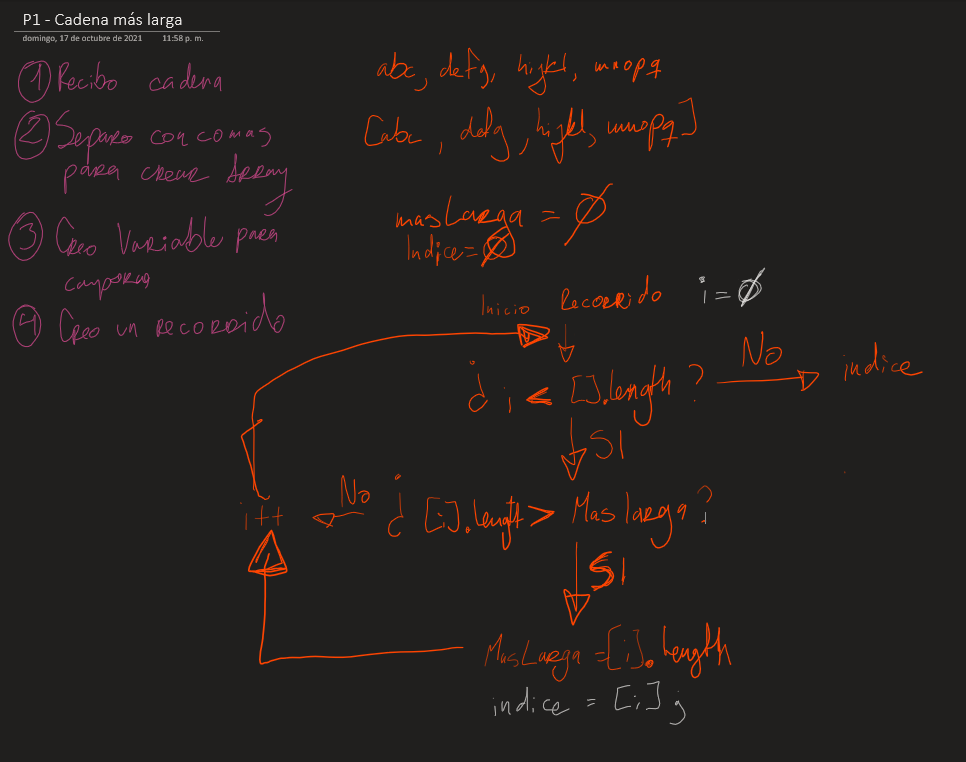 P1 - Cadena más larga
domingo, 17 de octubre de 2021 11:58 p. m.
1 Recibo cadena
2 Separo con comas
para crear Array
3 Creo Variable para
comparar
4 Creo un recorrido
abc, defg, hijkl, mnopq
[abc, defg, hijkl, mnopq]
masLarga = 0
Indice = 0
Inicio Recorrido i = 0
¿ i < [].length ? No indice
SI
i++ No ¿ [i].lengt > Mas larga ?
SI
MasLarga = [i].length
indice = [i] ;